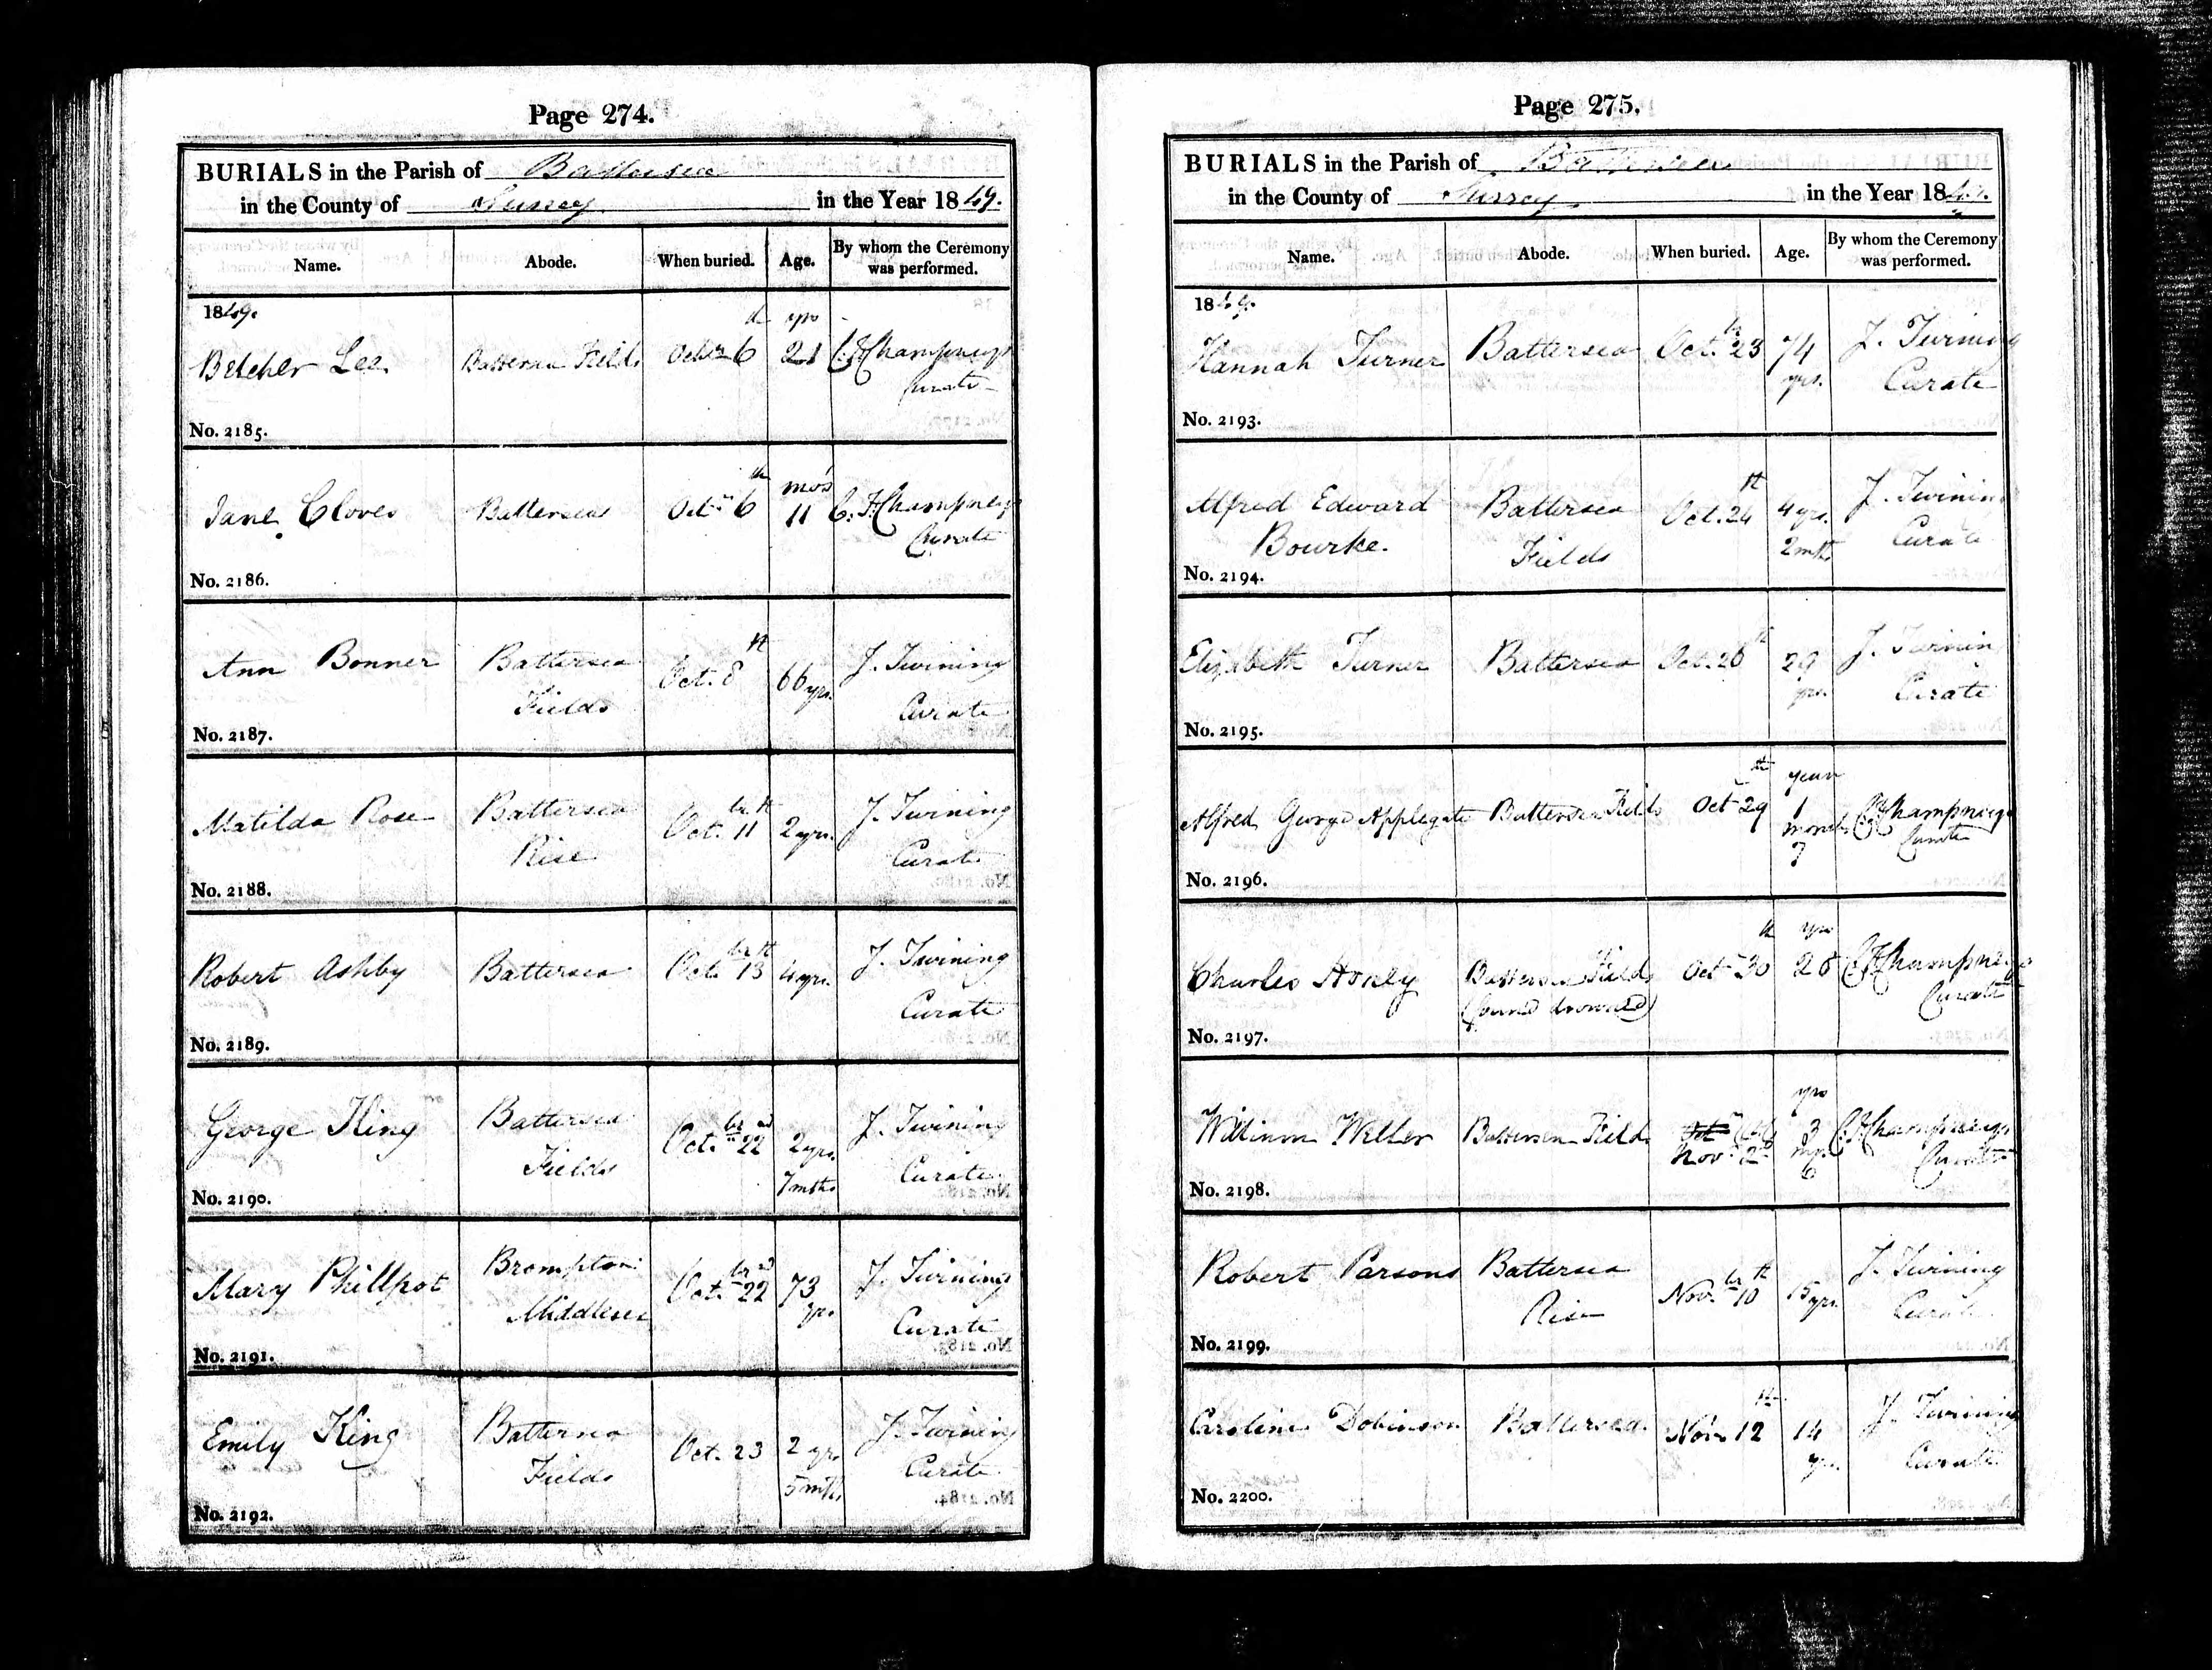 Page 274.
BURIALS in the Parish of Battersea
in the County of Surrey in the Year 1849.
Name. Abode. When buried. Age. By whom the Ceremony was performed.
1849.
Belcher Lee Battersea Fields Octbr 6th 21 yrs C. F. Champneys
Curate
No. 2185.
Jane Cloves Battersea Octr 6th mo's 11 C. F. Champneys
Curate
No. 2186.
Ann Bonner Battersea Oct. 8th 66 yrs. J. Twining
Fields Curate
No. 2187.
Matilda Rose Battersea Octbr. 11th 2 yrs. J. Twining
Rise Curate
No. 2188.
Robert Ashby Battersea Octbr. 13th 4 yrs. J. Twining
Curate
No. 2189.
George King Battersea Octbr. 22nd 2 yrs. J. Twining
Fields 7 mths Curate
No. 2190.
Mary Phillpot Brompton Octbr. 22nd 73 J. Twining
Middlesex yrs. Curate
No. 2191.
Emily King Battersea Oct. 23 2 yrs J. Twining
Fields 5 mths Curate
No. 2192.
Page 275.
BURIALS in the Parish of Battersea
in the County of Surrey in the Year 1849.
Name. Abode. When buried. Age. By whom the Ceremony was performed.
1849.
Hannah Turner Battersea Octbr. 23 74 J. Twining
yrs. Curate
No. 2193.
Alfred Edward Battersea Oct. 24th 4 yrs. J. Twining
Bourke. Fields 2 mths Curate
No. 2194.
Elizabeth Turner Battersea Oct. 26th 29 J. Twining
yrs. Curate
No. 2195.
Alfred George Applegate Battersea Fields Oct 29th year 1 C. F. Champneys
months 7 Curate
No. 2196.
Charles Battersea Fields Octr 30th yrs C. F. Champneys
(found drowned) Curate
No. 2197.
William Weller Battersea Fields Novr 2d yrs 3 C. F. Champneys
6 Curate
No. 2198.
Robert Parsons Battersea Novbr. 10th 15 yrs. J. Twining
Rise Curate
No. 2199.
Caroline Dobinson Battersea Nov. 12th 14 J. Twining
yrs. Curate
No. 2200.